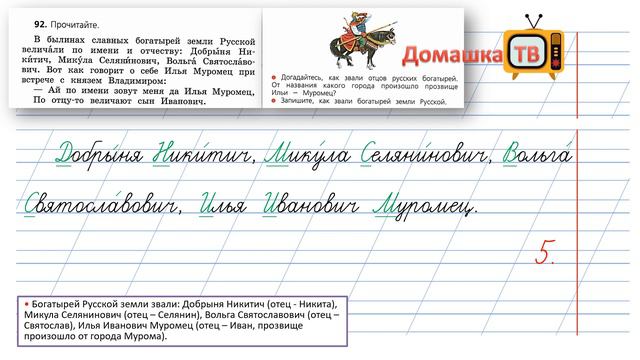 92. Прочитайте.
В былинах славных богатырей земли Русской
велича́ли по имени и отчеству: Добры́ня Ни-
ки́тич, Мику́ла Селяни́нович, Вольга́ Святосла́во-
вич. Вот как говорит о себе Илья Муромец при
встрече с князем Владимиром:
— Ай по имени зовут меня да Илья Муромец,
По отцу-то величают сын Иванович.
● Догадайтесь, как звали отцов русских богатырей.
От названия какого города произошло прозвище
Ильи — Муромец?
● Запишите, как звали богатырей земли Русской.
Домашка ТВ
Добры́ня Ники́тич, Мику́ла Селяни́нович, Вольга́
Святосла́вович, Илья Иванович Муромец.
5.
● Богатырей Русской земли звали: Добрыня Никитич (отец - Никита),
Микула Селянинович (отец – Селянин), Вольга Святославович (отец –
Святослав), Илья Иванович Муромец (отец – Иван, прозвище
произошло от города Мурома).